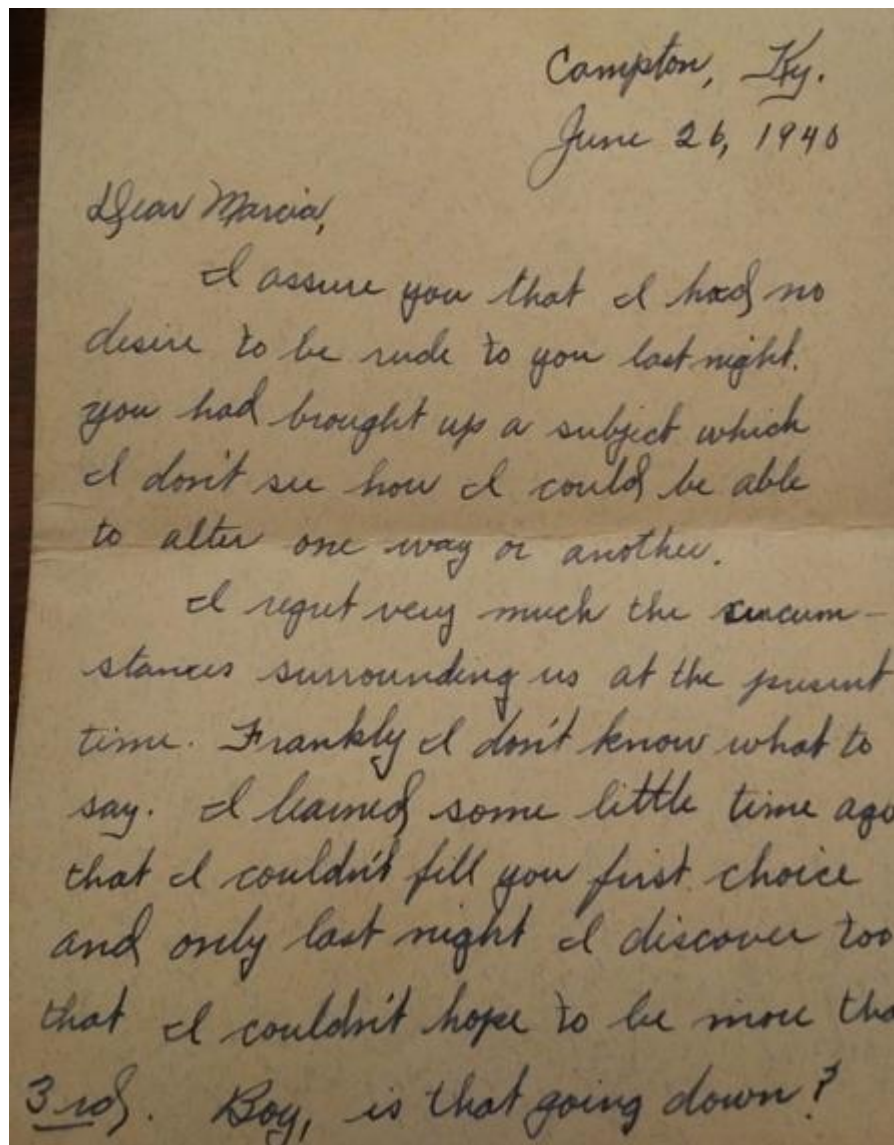 Campton, Ky.
June 26, 1940
Dear Marcia,
I assure you that I had no
desire to be rude to you last night.
you had brought up a subject which
I don't see how I could be able
to alter one way or another.
I regret very much the circum-
stances surrounding us at the present
time. Frankly I don't know what to
say. I learned some little time ago
that I couldn't fill you first choice
and only last night I discover too
that I couldn't hope to be more tha
3rd. Boy, is that going down?